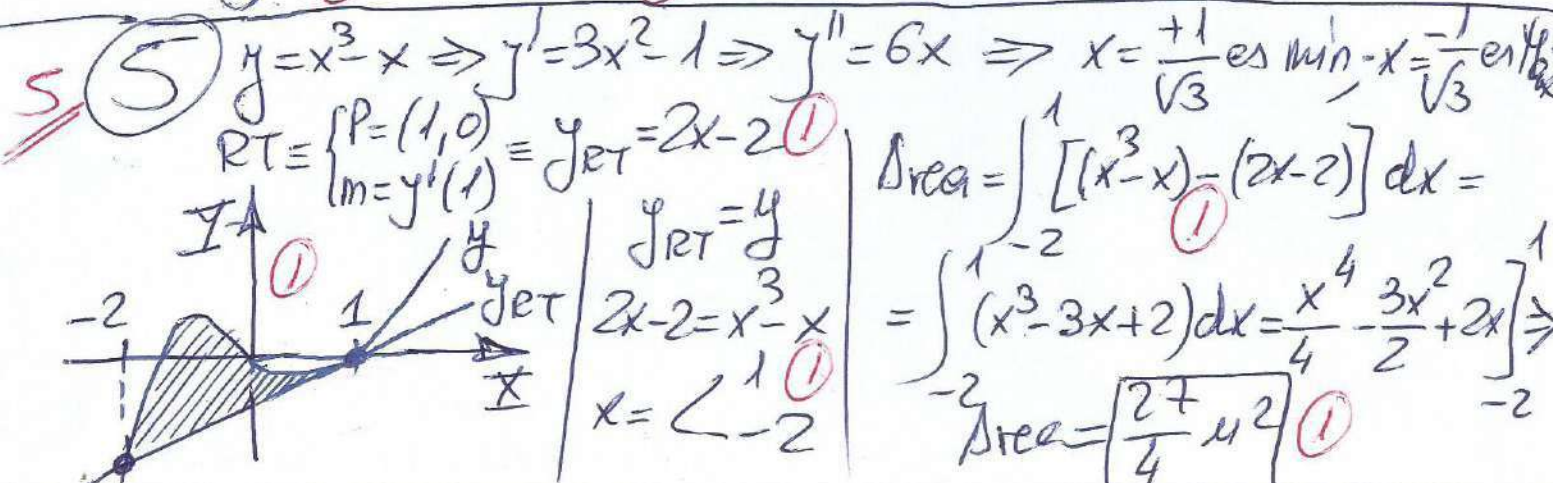 5 ⑤ y = x³ - x ⇒ y' = 3x² - 1 ⇒ y'' = 6x ⇒ x = +1/√3 es mín, x = -1/√3 es Máx
RT ≡ { P = (1,0) ; m = y'(1) ≡ y_RT = 2x - 2 ①
Y ① y y_RT
-2 1 X
y_RT = y
2x - 2 = x³ - x
x = < 1 ; -2 ①
Area = ∫₋₂¹ [(x³ - x) - (2x - 2)] dx =
①
= ∫₋₂¹ (x³ - 3x + 2) dx = x⁴/4 - 3x²/2 + 2x ]₋₂¹ ⇒
Area = 27/4 u² ①